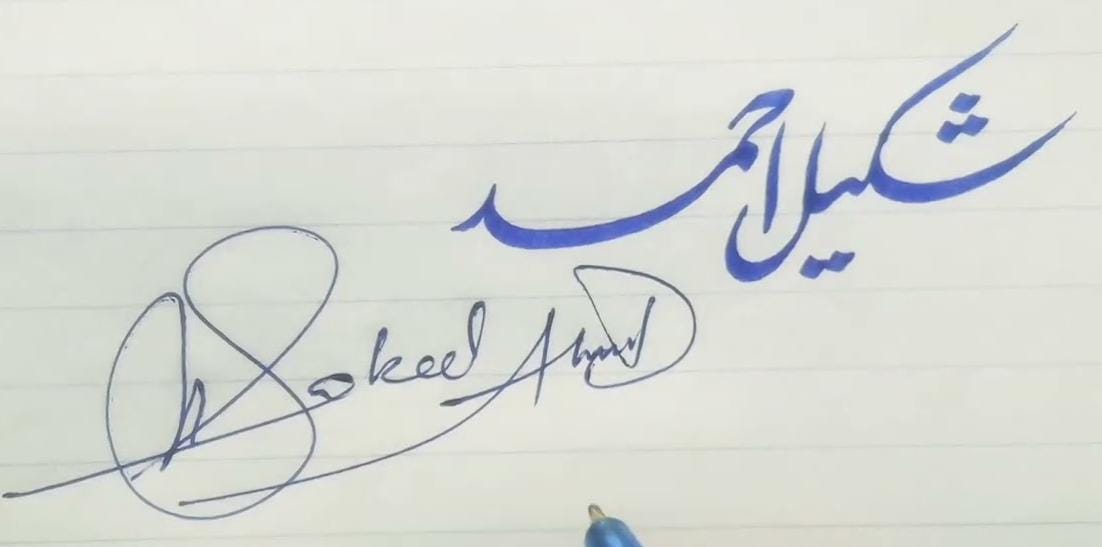 شکیل احمد
Shakeel Ahmad